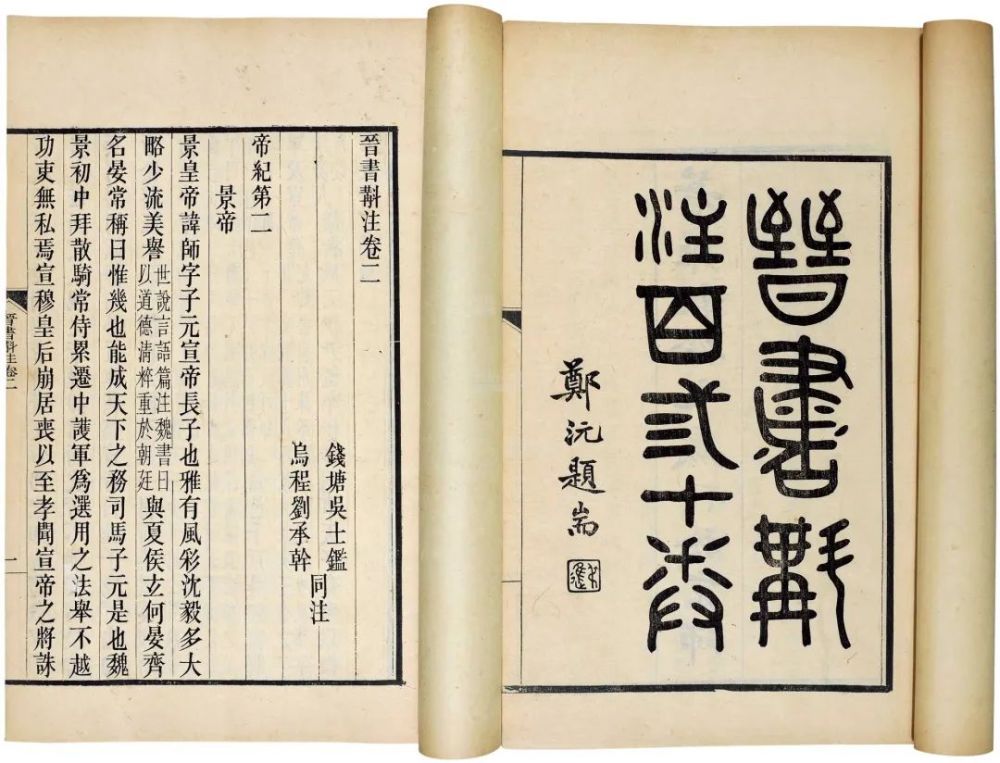 晉書斠
注百弎十卷
鄭沅題耑
晉書斠注卷二
錢塘吳士鑑
烏程劉承幹
同注
帝紀第二
景帝
景皇帝諱師字子元宣帝長子也雅有風彩沈毅多大
略少流美譽世說言語篇注魏書曰以道德清粹重於朝廷與夏侯玄何晏齊
名晏常稱曰惟幾也能成天下之務司馬子元是也魏
景初中拜散騎常侍累遷中護軍爲選用之法舉不越
功吏無私焉宣穆皇后崩居喪以至孝聞宣帝之將誅
晉書斠注卷二
一